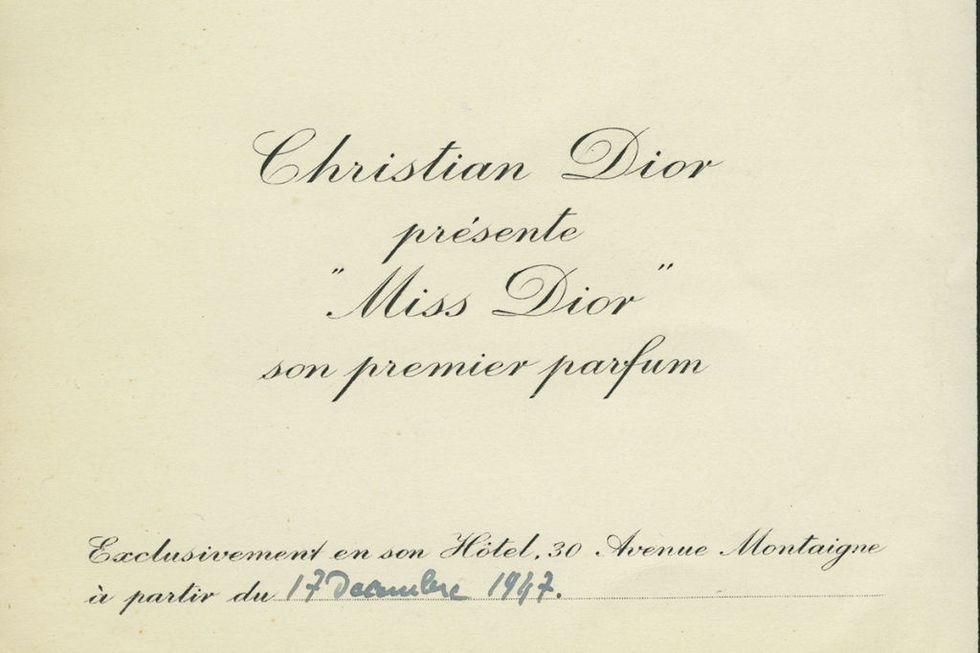 Christian Dior
présente
"Miss Dior"
son premier parfum
Exclusivement en son Hôtel, 30 Avenue Montaigne
à partir du 17 Décembre 1947.